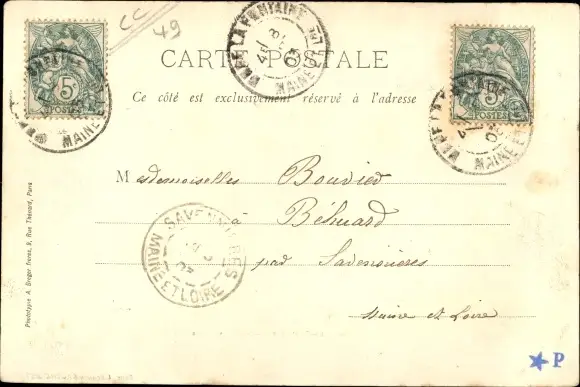 CC
49
CARTE POSTALE
Ce côté est exclusivement réservé à l'adresse
5c
POSTES
MAINE ET
LA FONTAINE
MAINE ET
5
POSTES
MAINE ET
Mesdemoiselles Bouvier
à Béhuard
par Savennières
Maine et Loire
SAVENNIERES
MAINE ET LOIRE
Phototypie A. Breger frères, 9, Rue Thénard, Paris
★P